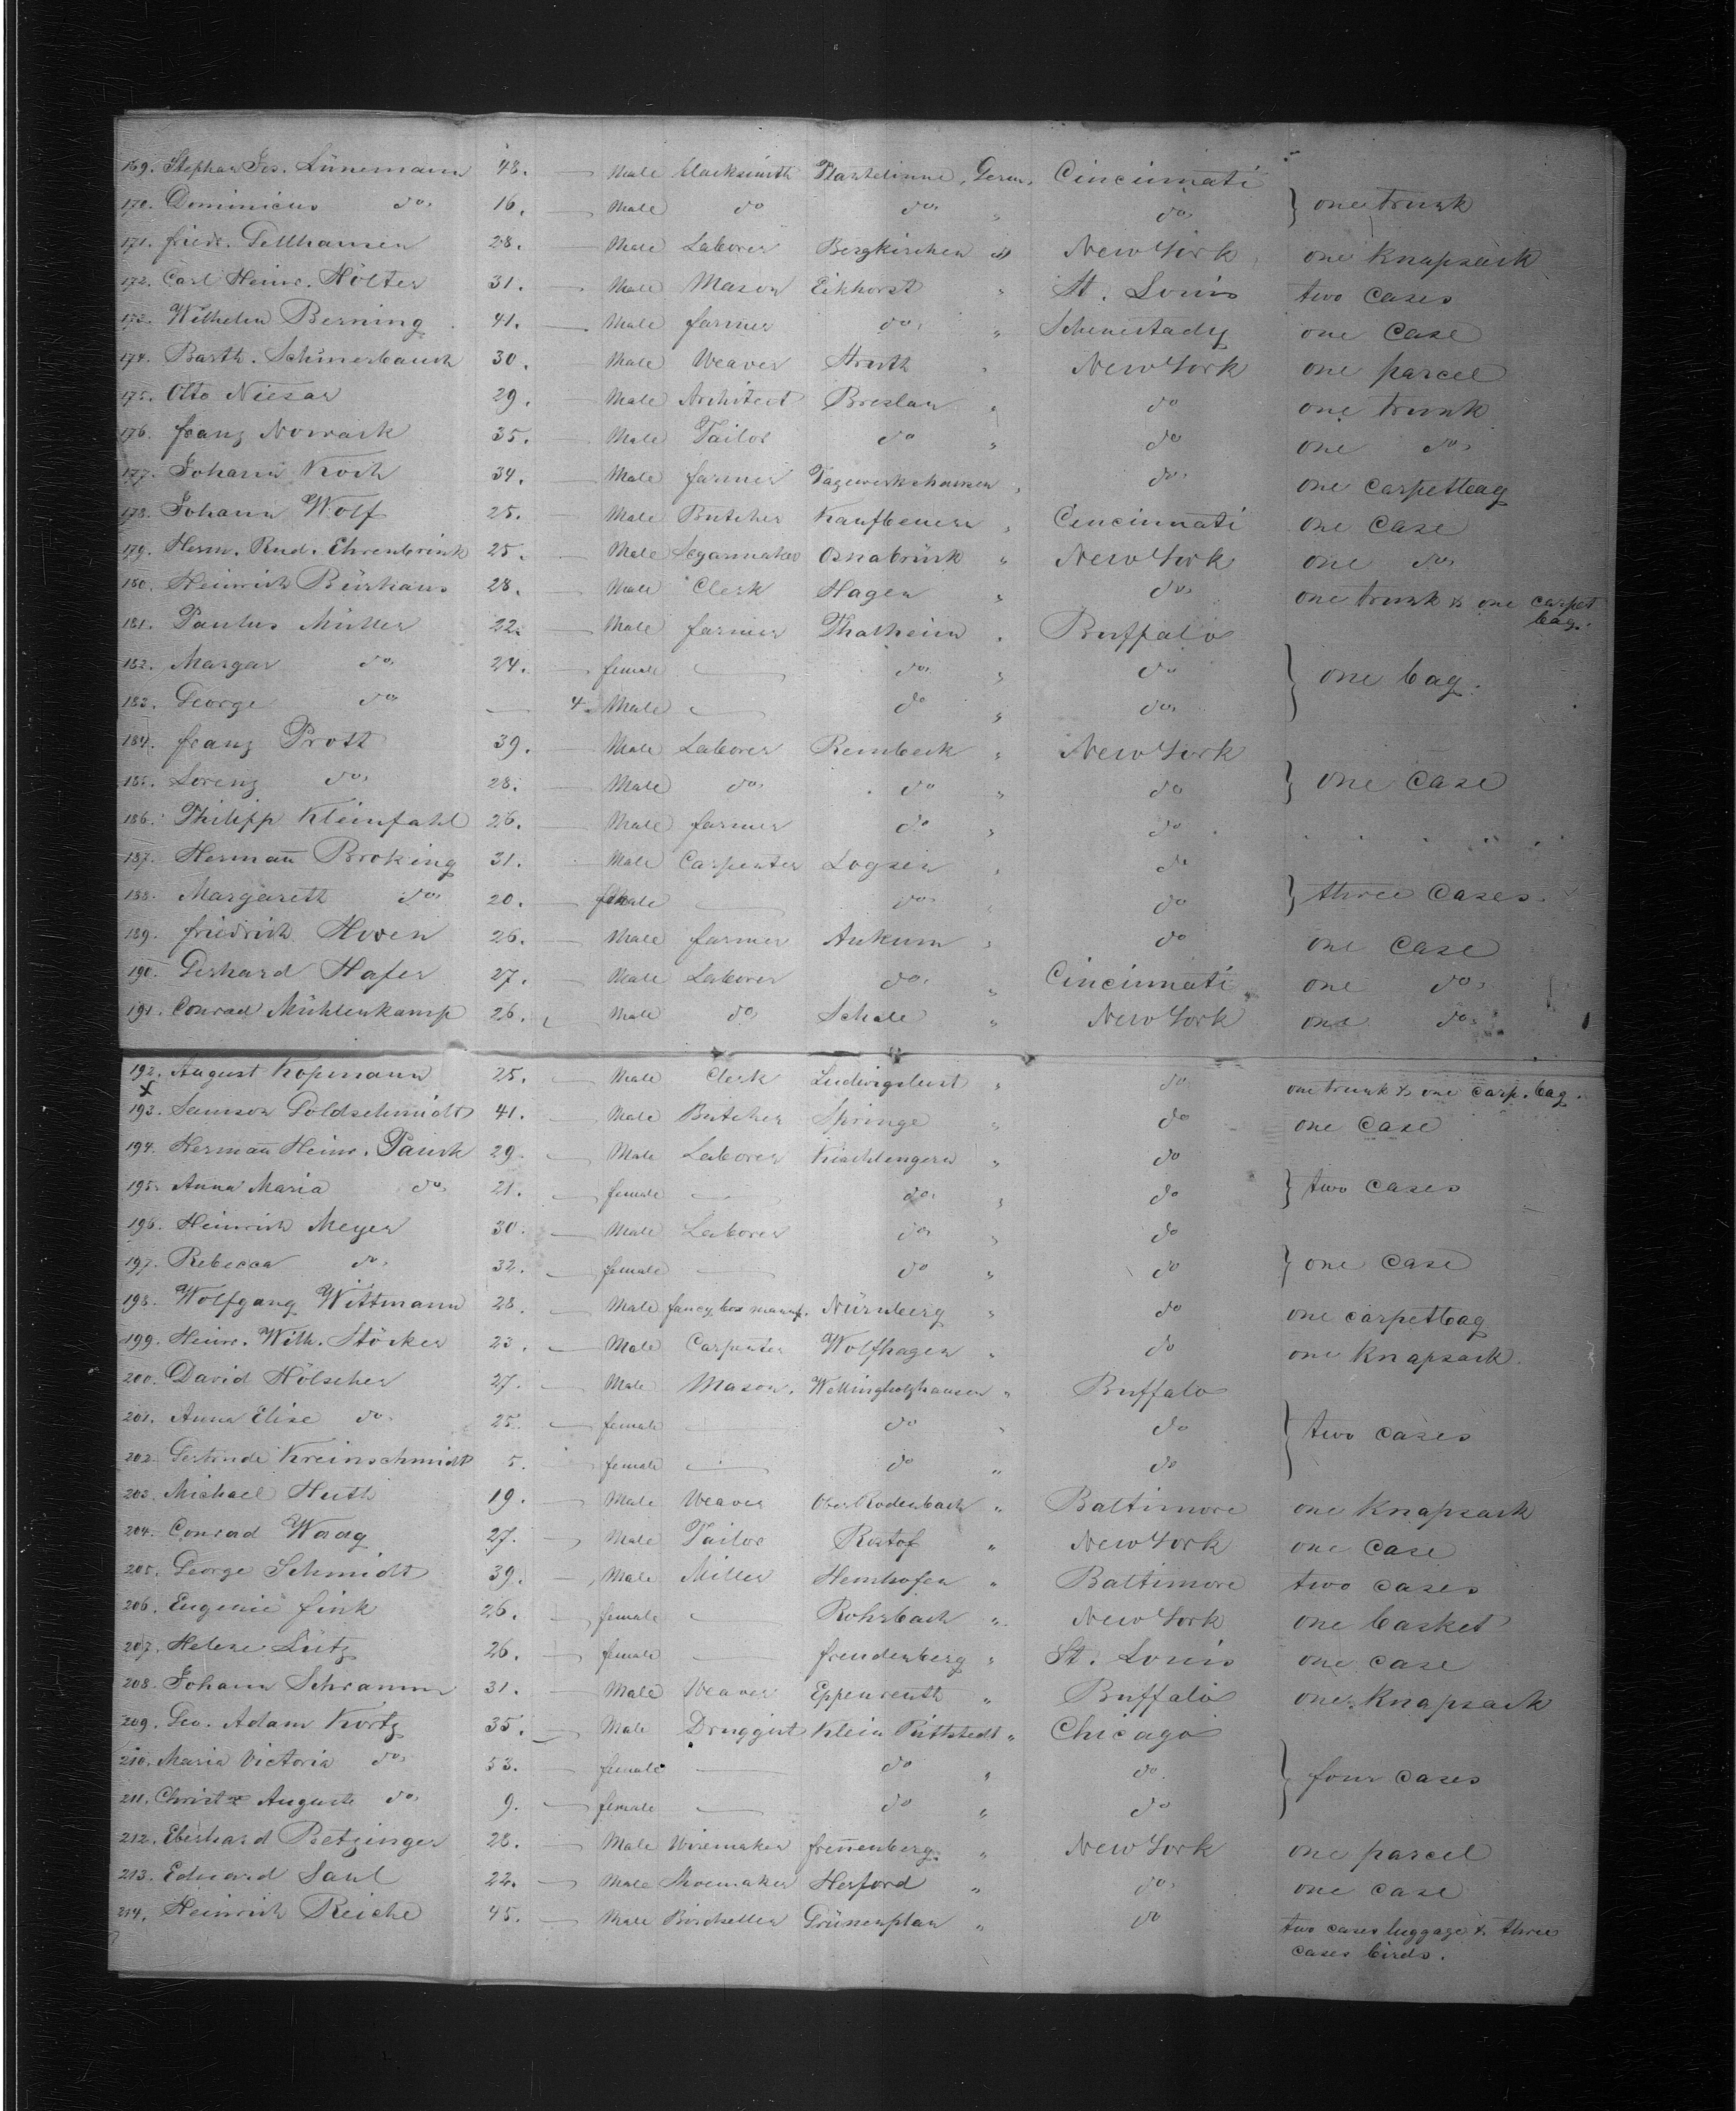 169. Stephan Jos. Lünemann 48. — Male blacksmith Plantlünne, Germ. Cincinnati
170. Dominicus do. 16. — Male do do. " do. } one trunk
171. friedr. Gellhausen 28. — Male Laborer Bergkirchen " New York one Knapsack
172. Carl Heinr. Hölter 31. — Male Mason Eikhorst " St. Louis two cases
173. Wilhelm Berning 41. — Male farmer do. " Schenectady one case
174. Barth. Schmerbauch 30. — Male Weaver Struth " New York one parcel
175. Otto Niesar 29. — Male Architect Breslau " do one trunk
176. franz Nowack 35. — Male Tailor do " do one do.
177. Johann Koch 34. — Male farmer Tagewerkshausen " do. one carpetbag
178. Johann Wolf 25. — Male Butcher Kaufbeuern " Cincinnati one case
179. Herm. Rud. Ehrenbrink 25. — Male Segarmaker Osnabrück " New York one do.
180. Heinrich Bürhaus 28. — Male Clerk Hagen " do. one trunk & one carpet bag.
181. Paulus Müller 22. — Male farmer Thalheim " Buffalo
182. Margar do. 24. — female — do. " do } one bag.
183. George do — 4. Male — do " do.
184. franz Prott 39. — Male Laborer Rembeck " New York
185. Lorenz do. 28. — Male do. do " do } one case
186. Philipp Kleinfahl 26. — Male farmer do " do " " " " "
187. Herman̅ Broking 31. Male Carpenter Logsen " do
188. Margareth do. 20. — female — do. " do } three cases.
189. friedrich Hven 26. — Male farmer Ankum " do one case
190. Gerhard Hafer 27. — Male Laborer do. " Cincinnati one do.
191. Conrad Mühlenkamp 26. — Male do. Schale " New York one do.
192. August Kopmann 25. — Male Clerk Ludwigslust " do. one trunk & one carp. bag.
x
193. Samson Goldschmidt 41. — Male Butcher Springe " do one case
194. Herman̅ Heinr. Pauck 29. — Male Laborer Kirchlengern " do
195. Anna Maria do. 21. — female — do. " do } two cases
196. Heinrich Meyer 30. — Male Laborer do. " do
197. Rebecca do. 32. — female — do " do } one case
198. Wolfgang Wittmann 28. — Male fancy box manuf. Nürnberg " do one carpetbag
199. Heinr. Wilh. Stöcker 23. — Male Carpenter Wolfhagen " do one Knapsack.
200. David Hölscher 27. — Male Mason. Wellingholzhausen " Buffalo
201. Anna Elise do. 25. — female — do " do } two cases
202. Gertrude Kreinschmidt 5. female — do " do
203. Michael Huth 19. — Male Weaver Ober Rodenbach " Baltimore one Knapsack
204. Conrad Waag 27. — Male Tailor Rostof " New York one case
205. George Schmidt 39. — Male Miller Hemhofen " Baltimore two cases
206. Eugenie fink 26. — female — Rohrbach " New York one basket
207. Helene Lütz 26. — female — freudenberg " St. Louis one case
208. Johann Schramm 31. — Male Weaver Eppenreuth " Buffalo one Knapsack
209. Geo. Adam Kortz 35. — Male Druggist Klein Rittstedt " Chicago
210. Maria Victoria do. 53. — female — do " do. } four cases
211. Christe Auguste do. 9. — female — do " do
212. Eberhard Betzinger 28. — Male Wiremaker fren̅enberg. " New York one parcel
213. Eduard Saul 22. — Male Shoemaker Herford " do. one case
214. Heinrich Reiche 45. — Male Birdseller Grünenplan " do two cases luggage & three cases birds.